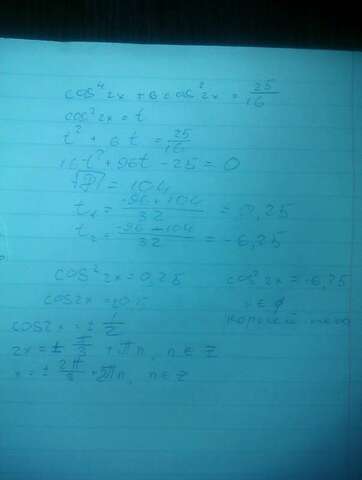 cos⁴2x + 6 cos²2x = 25/16
cos²2x = t
t² + 6t = 25/16
16t² + 96t - 25 = 0
√D = 104
t₁ = (-96 + 104)/32 = 0,25
t₂ = (-96 - 104)/32 = -6,25
cos²2x = 0,25 cos²2x = -6,25
cos2x = ±0,5 ∈ ∅
cos2x = ± 1/2 корней нет
2x = ± π/3 + πn, n ∈ Z
x = ± 2π/3 + 2πn, n ∈ Z